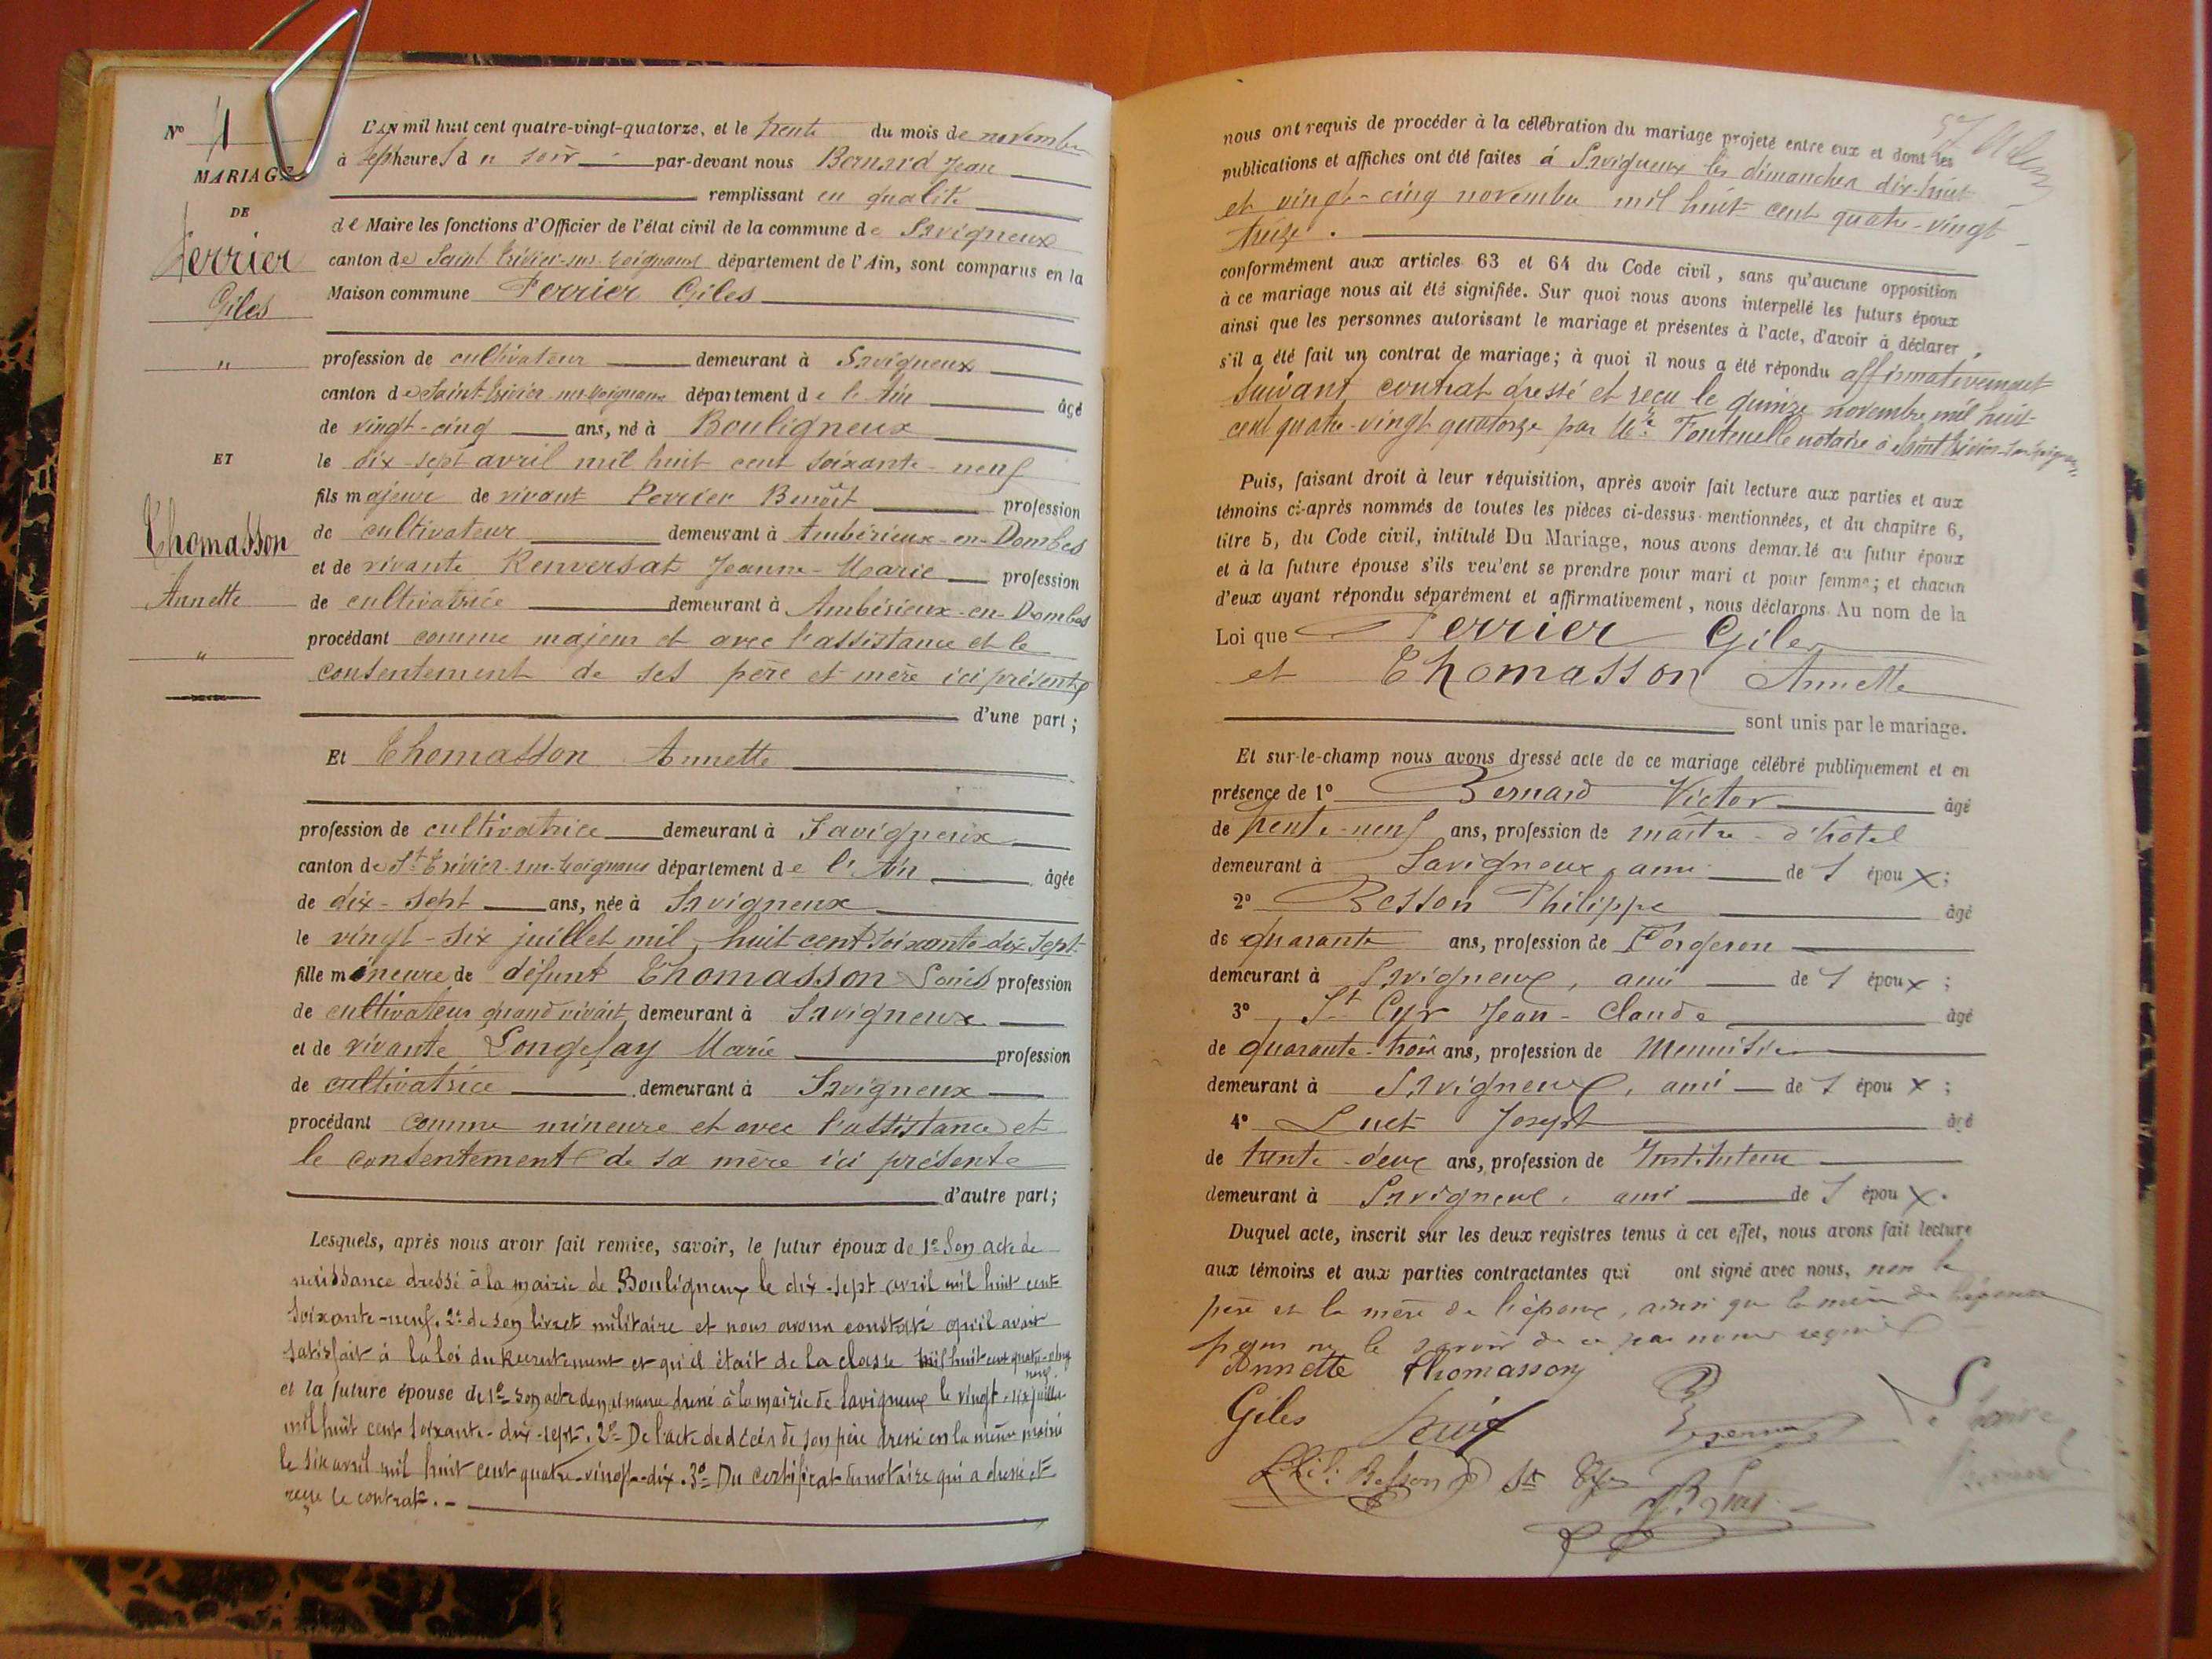 N° 4
MARIAGE
DE
Perrier
Giles
"
ET
Thomasson
Annette
"
L'AN mil huit cent quatre-vingt-quatorze, et le trente du mois de novembre
à sept heures du soir par-devant nous Bernard Jean
remplissant en qualité
de Maire les fonctions d'Officier de l'état civil de la commune de Savigneux
canton de Saint Trivier-sur-Moignans département de l'Ain, sont comparus en la
Maison commune Perrier Giles
profession de cultivateur demeurant à Savigneux
canton de Saint-Trivier sur Moignans département de l'Ain âgé
de vingt-cinq ans, né à Bouligneux
le dix-sept avril mil huit cent soixante-neuf
fils majeur de vivant Perrier Benoît profession
de cultivateur demeurant à Ambérieux-en-Dombes
et de vivante Renversat Jeanne-Marie profession
de cultivatrice demeurant à Ambérieux-en-Dombes
procédant comme majeur et avec l'assistance et le
consentement de ses père et mère ici présents
d'une part ;
Et Thomasson Annette
profession de cultivatrice demeurant à Savigneux
canton de St Trivier-sur-Moignans département de l'Ain âgée
de dix-sept ans, née à Savigneux
le vingt-six juillet mil huit cent soixante-dix-sept
fille mineure de défunt Thomasson Louis profession
de cultivateur quand vivait demeurant à Savigneux
et de vivante Longefay Marie profession
de cultivatrice demeurant à Savigneux
procédant comme mineure et avec l'assistance et
le consentement de sa mère ici présente
d'autre part ;
Lesquels, après nous avoir fait remise, savoir, le futur époux de 1° Son acte de
naissance dressé à la mairie de Bouligneux le dix-sept avril mil huit cent
soixante-neuf. 2° de son livret militaire et nous avons constaté qu'il avait
satisfait à la loi du Recrutement et qu'il était de la classe mil huit cent quatre-vingt
neuf.
et la future épouse de 1° Son acte de naissance dressé à la mairie de Savigneux le vingt-six juillet
mil huit cent soixante-dix-sept. 2° De l'acte de décès de son père dressé en la même mairie
le six avril mil huit cent quatre-vingt-dix. 3° Du certificat du notaire qui a dressé et
reçu le contrat. -
nous ont requis de procéder à la célébration du mariage projeté entre eux et dont les
publications et affiches ont été faites à Savigneux les dimanches dix-huit
et vingt-cinq novembre mil huit cent quatre-vingt
treize.
conformément aux articles 63 et 64 du Code civil, sans qu'aucune opposition
à ce mariage nous ait été signifiée. Sur quoi nous avons interpellé les futurs époux
ainsi que les personnes autorisant le mariage et présentes à l'acte, d'avoir à déclarer
s'il a été fait un contrat de mariage ; à quoi il nous a été répondu affirmativement
suivant contrat dressé et reçu le quinze novembre mil huit-
cent quatre-vingt quatorze par Me Fontenelle notaire à Saint Trivier-sur-Moignans
Puis, faisant droit à leur réquisition, après avoir fait lecture aux parties et aux
témoins ci-après nommés de toutes les pièces ci-dessus mentionnées, et du chapitre 6,
titre 5, du Code civil, intitulé Du Mariage, nous avons demandé au futur époux
et à la future épouse s'ils veulent se prendre pour mari et pour femme ; et chacun
d'eux ayant répondu séparément et affirmativement, nous déclarons Au nom de la
Loi que Perrier Giles
et Thomasson Annette
sont unis par le mariage.
Et sur-le-champ nous avons dressé acte de ce mariage célébré publiquement et en
présence de 1° Bernard Victor âgé
de trente-neuf ans, profession de maître-d'hôtel
demeurant à Savigneux, ami de l'époux ;
2° Besson Philippe âgé
de quarante ans, profession de Forgeron
demeurant à Savigneux, ami de l'époux ;
3° St Cyr Jean-Claude âgé
de quarante-trois ans, profession de Menuisier
demeurant à Savigneux, ami de l'époux ;
4° Luct Joseph âgé
de trente-deux ans, profession de Instituteur
demeurant à Savigneux, ami de l'époux.
Duquel acte, inscrit sur les deux registres tenus à cet effet, nous avons fait lecture
aux témoins et aux parties contractantes qui ont signé avec nous, non le
père et la mère de l'époux, ainsi que la mère de l'épouse
pour ne le savoir de ce par nous requis
Annette Thomasson
Giles
Le Maire
Phil: Besson St Cyr